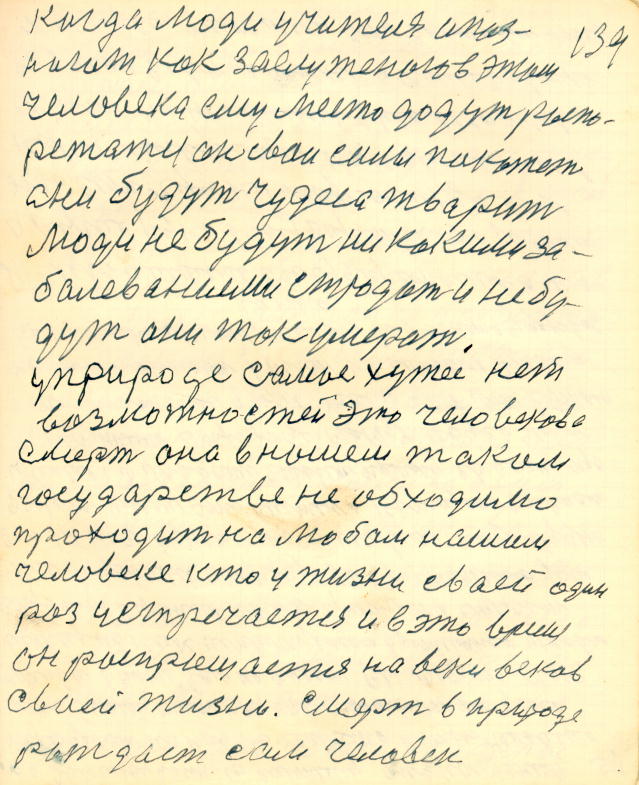 когда люди учителя опоз-
нают как заслуженогов этом
139
человека ему место дадут распо-
режаты он свои силы покажет
они будут чудеса тварит
люди не будут никокими за-
балеваниеми стродат и небу-
дут они ток умерат.
уприроде самые хужее нет
возможностей это человекова
смерт она внашем таком
государстве не обходимо
проходит на любом нашим
человеке кто у жизни сваей один
раз устречается и в это время
он распрещается на веки веков
сваей жизни. смерт в природе
раждает сам человек